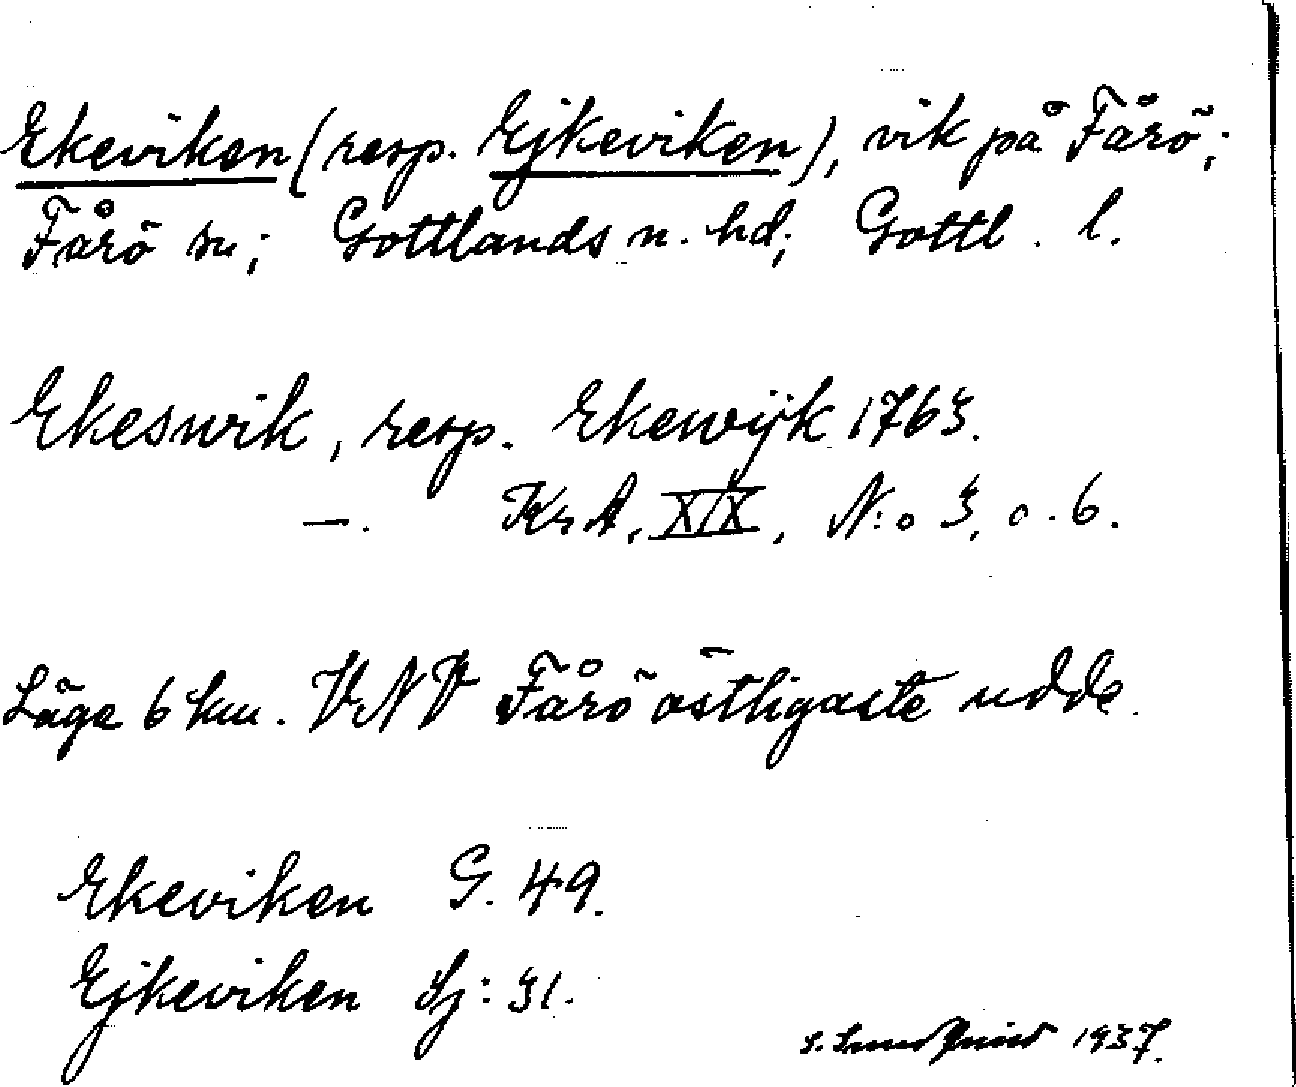 Ekeviken (resp. Ejkeviken), vik på Fårö;
Fårö sn; Gottlands n. hd; Gottl. l.
Ekeswik, resp. Ekewijk 1763.
—. KrA, XIX, N:o 3, o. 6.
Läge 6 km. VNV Fårö östligaste udde.
Ekeviken G. 49.
Ejkeviken Sj: 31.
S. 1937.